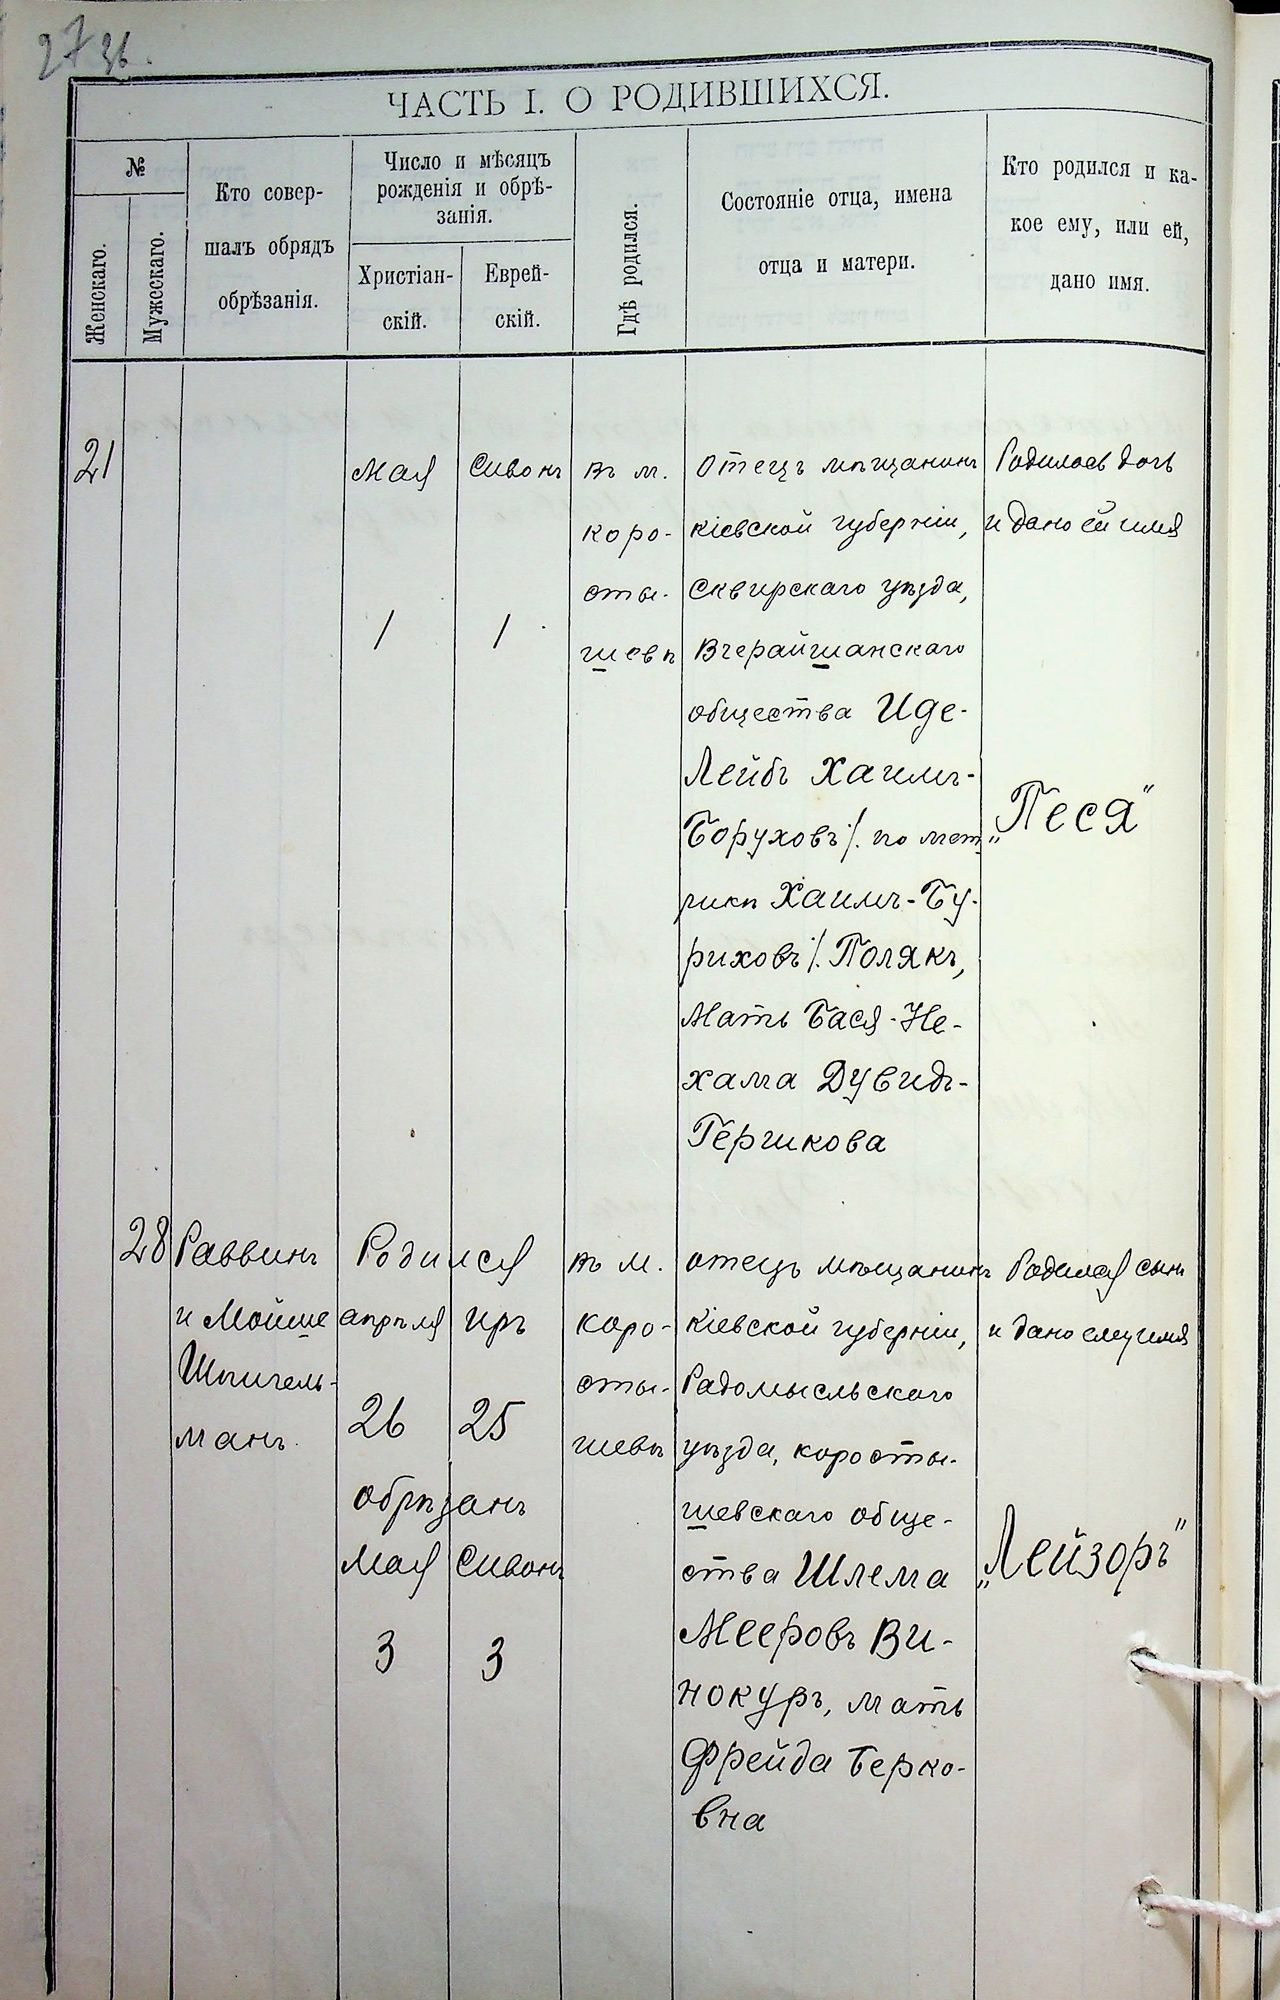 27 36.
ЧАСТЬ I. О РОДИВШИХСЯ.
№
Женскаго.
Мужескаго.
Кто совер-
шалъ обрядъ
обрѣзанія.
Число и мѣсяцъ
рожденія и обрѣ-
занія.
Христіан-
скій.
Еврей-
скій.
Гдѣ родился.
Состояніе отца, имена
отца и матери.
Кто родился и ка-
кое ему, или ей,
дано имя.
21
Мая
1
Сивонъ
1
въ м.
коро-
сты-
шевѣ
Отецъ мѣщанинъ
Кіевской губерніи,
Сквирскаго уѣзда,
Вчерайшанскаго
общества Иде-
Лейбъ Хаимъ-
Боруховъ /. по мет-
рикѣ Хаимъ-Бу-
риховъ /. Полякъ,
Мать Бася-Не-
хама Дувидъ-
Гершкова
Родилась дочь
и дано ей имя
„Песя“
28
Раввинъ
и Мойше
Шпигель-
манъ.
Родился
апрѣля Иръ
26 25
обрѣзанъ
Мая Сивонъ
3 3
въ м.
коро-
сты-
шевѣ
отецъ мѣщанинъ
Кіевской губерніи,
Радомысльскаго
уѣзда, коросты-
шевскаго обще-
ства Шлема
Мееровъ Ви-
нокуръ, мать
Фрейда Берко-
вна
Родился сынъ
и дано ему имя
„Лейзоръ“